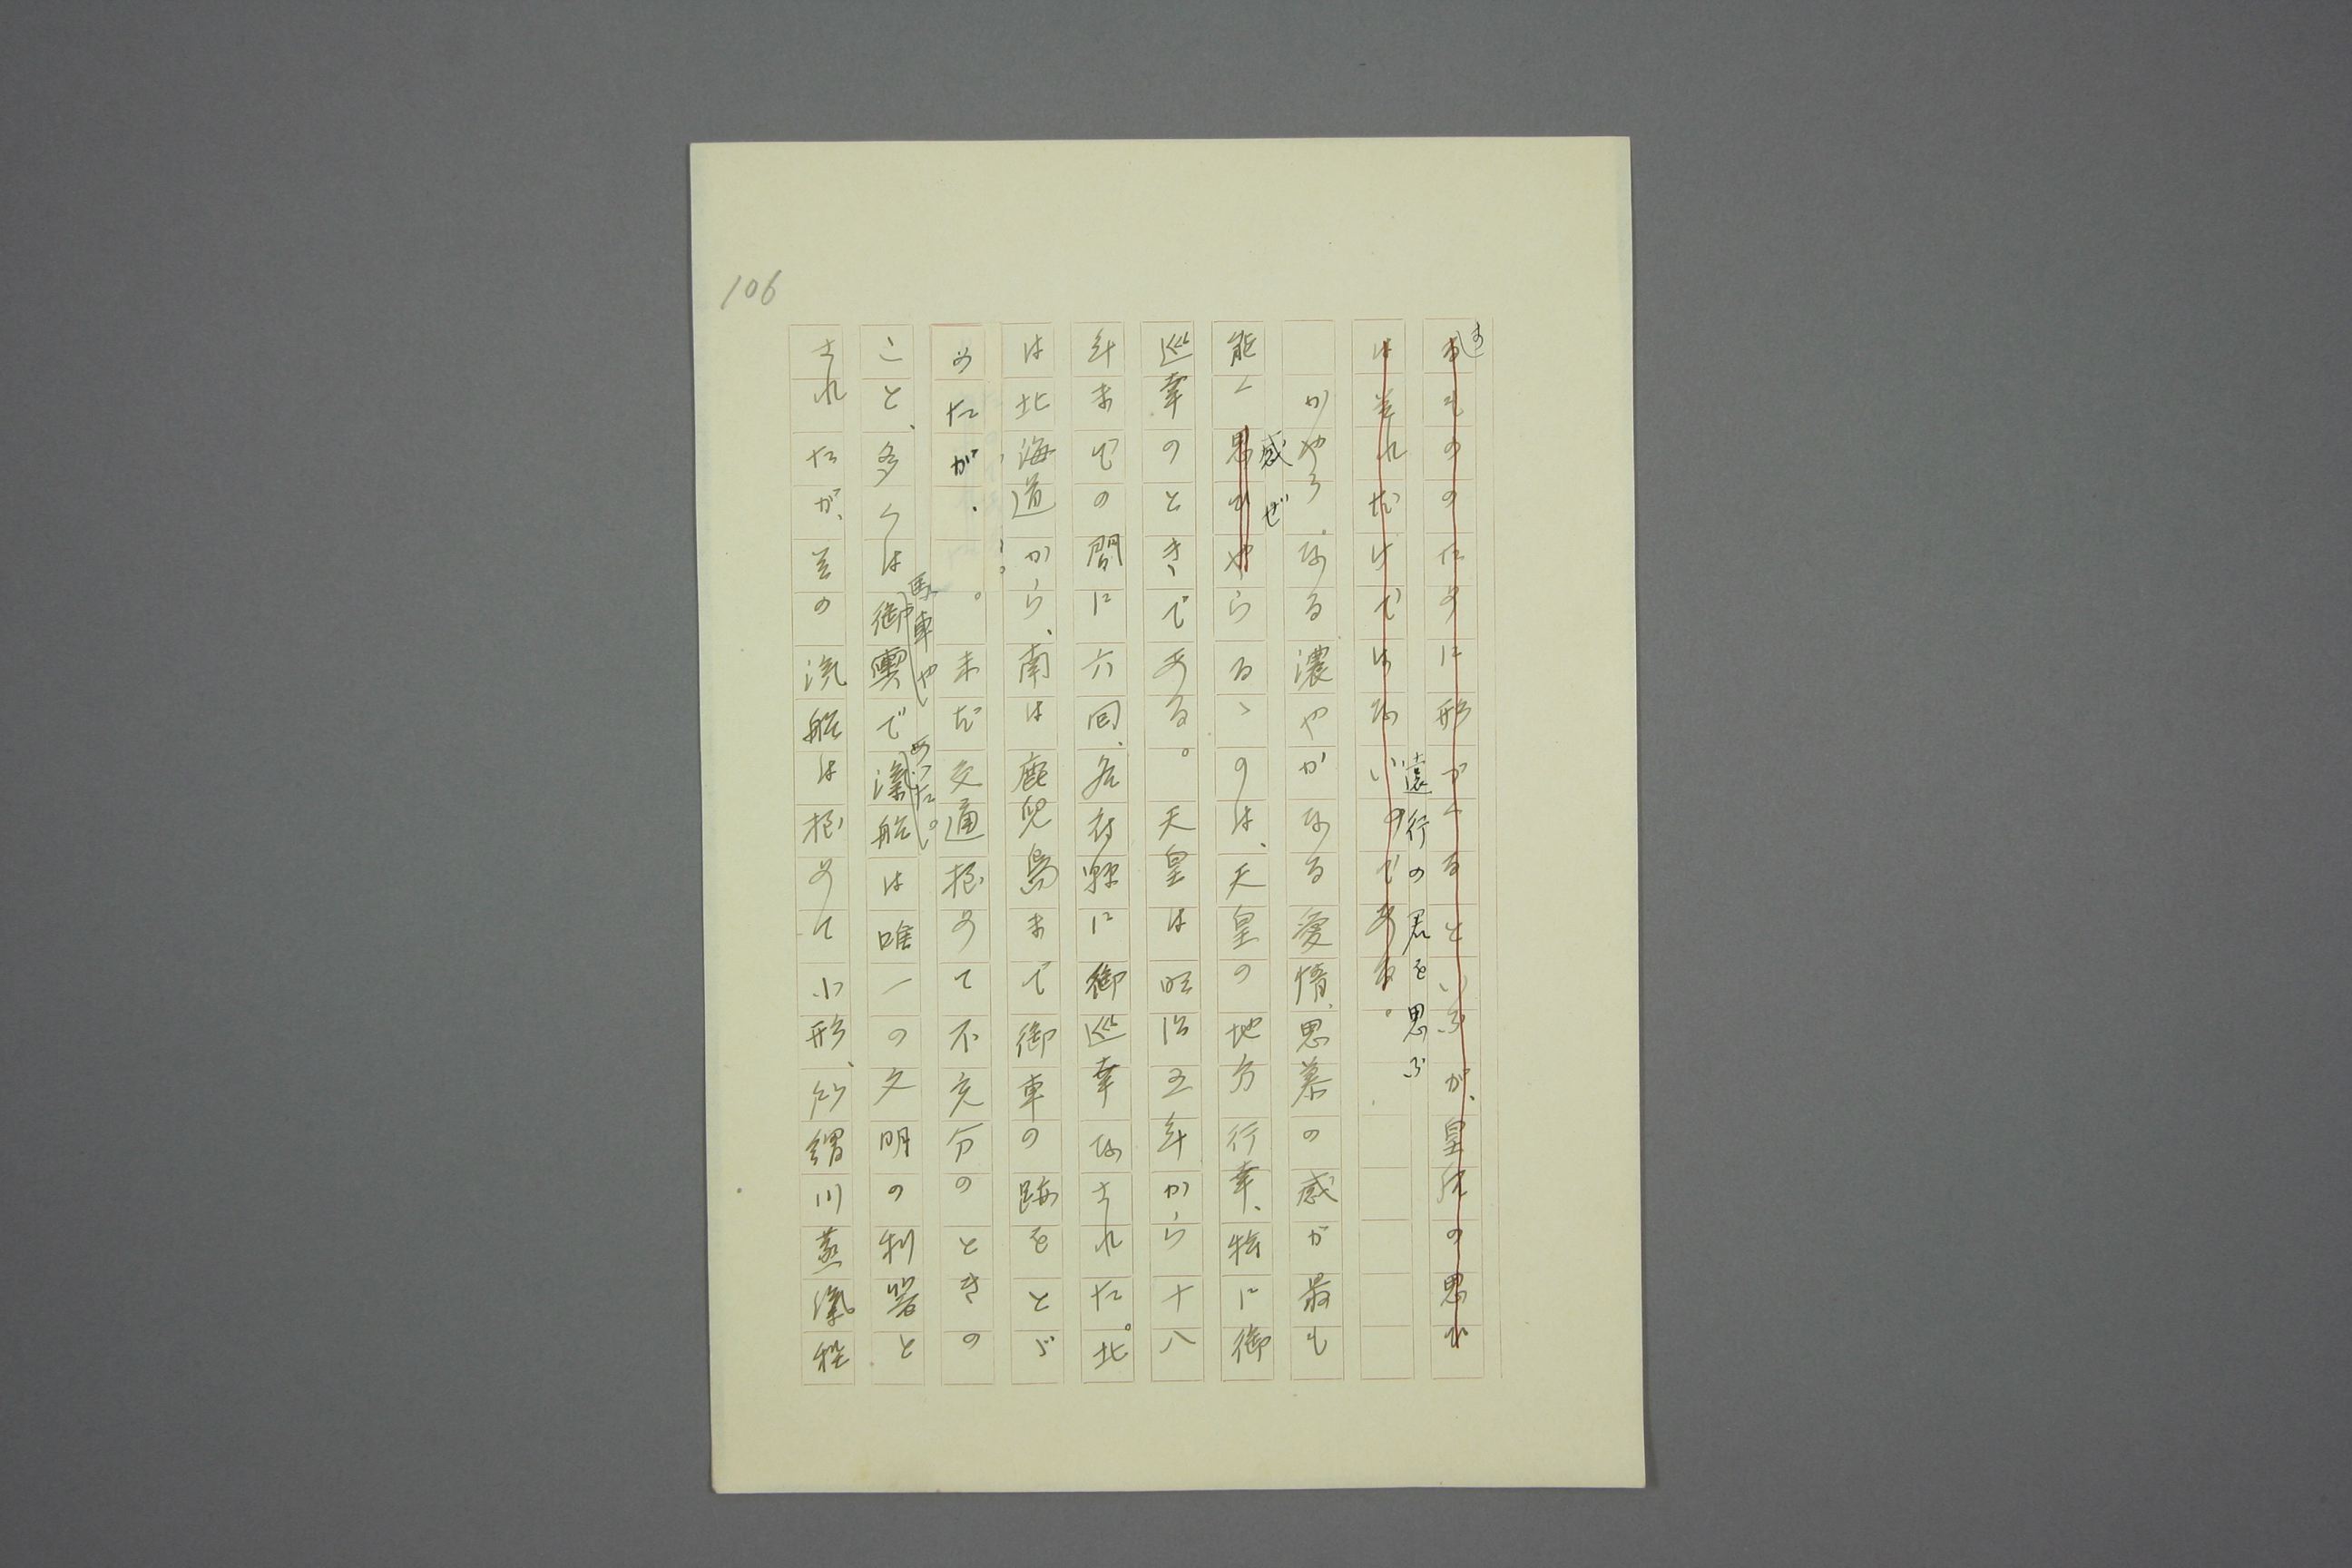 106
ま
あもののために形がくるといふが、皇后の思ひ
はそれだけではないのである。
遠行の君を思ふ
かやう。なる濃やかなる愛情、思慕の感が最も
能く思ひやらるゝのは、天皇の地方行幸、特に御
感ぜ
巡幸のときである。天皇は明治五年から十八
年までの間に六回、各府縣に御巡幸なされた。北
は北海道から、南は鹿兒島まで御車の跡をとゞ
めたが、。未だ交通極めて不充分のときの
こと、多くは御輿で滊船は唯一の文明の利器と
馬車や
あつた。
されたが、その汽船は極めて小形、所謂川蒸滊程